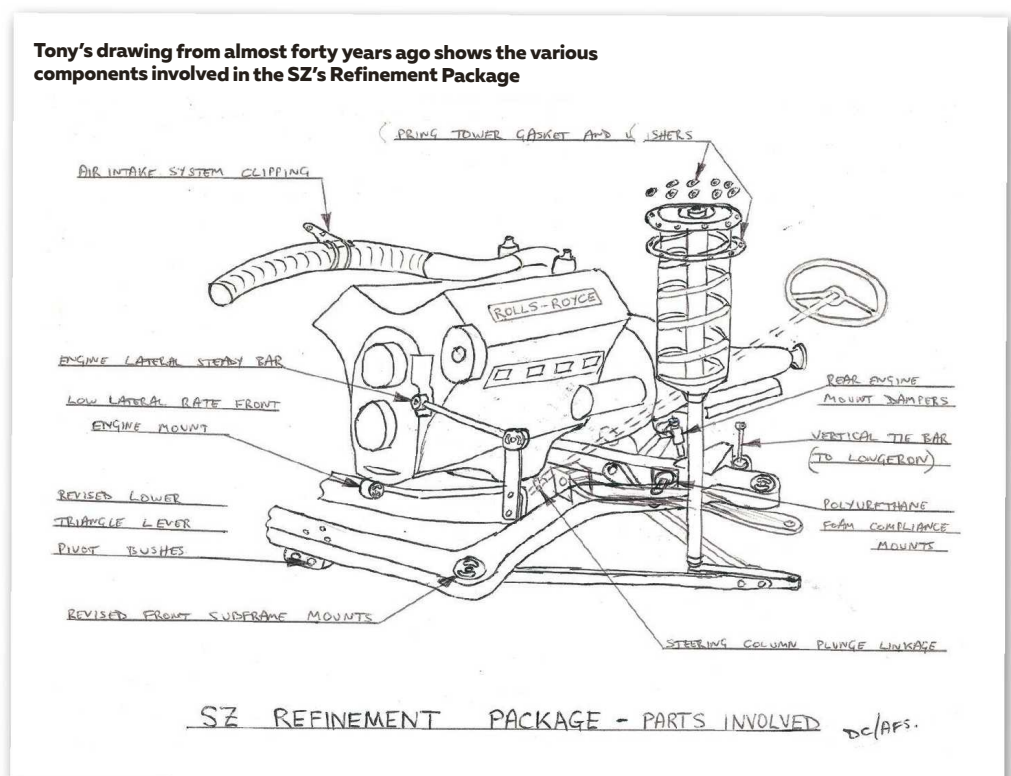 Tony's drawing from almost forty years ago shows the various
components involved in the SZ's Refinement Package
PRING TOWER GASKET AND ISHERS
AIR INTAKE SYSTEM CLIPPING
ROLLS-ROYCE
ENGINE LATERAL STEADY BAR
LOW LATERAL RATE FRONT
ENGINE MOUNT
REVISED LOWER
TRIANGLE LEVER
PIVOT BUSHES
REVISED FRONT SUBFRAME MOUNTS
REAR ENGINE
MOUNT DAMPERS
VERTICAL TIE BAR
(TO LONGERON)
POLYURETHANE
FOAM COMPLIANCE
MOUNTS
STEERING COLUMN PLUNGE LINKAGE
SZ REFINEMENT PACKAGE - PARTS INVOLVED
DC/AFS.